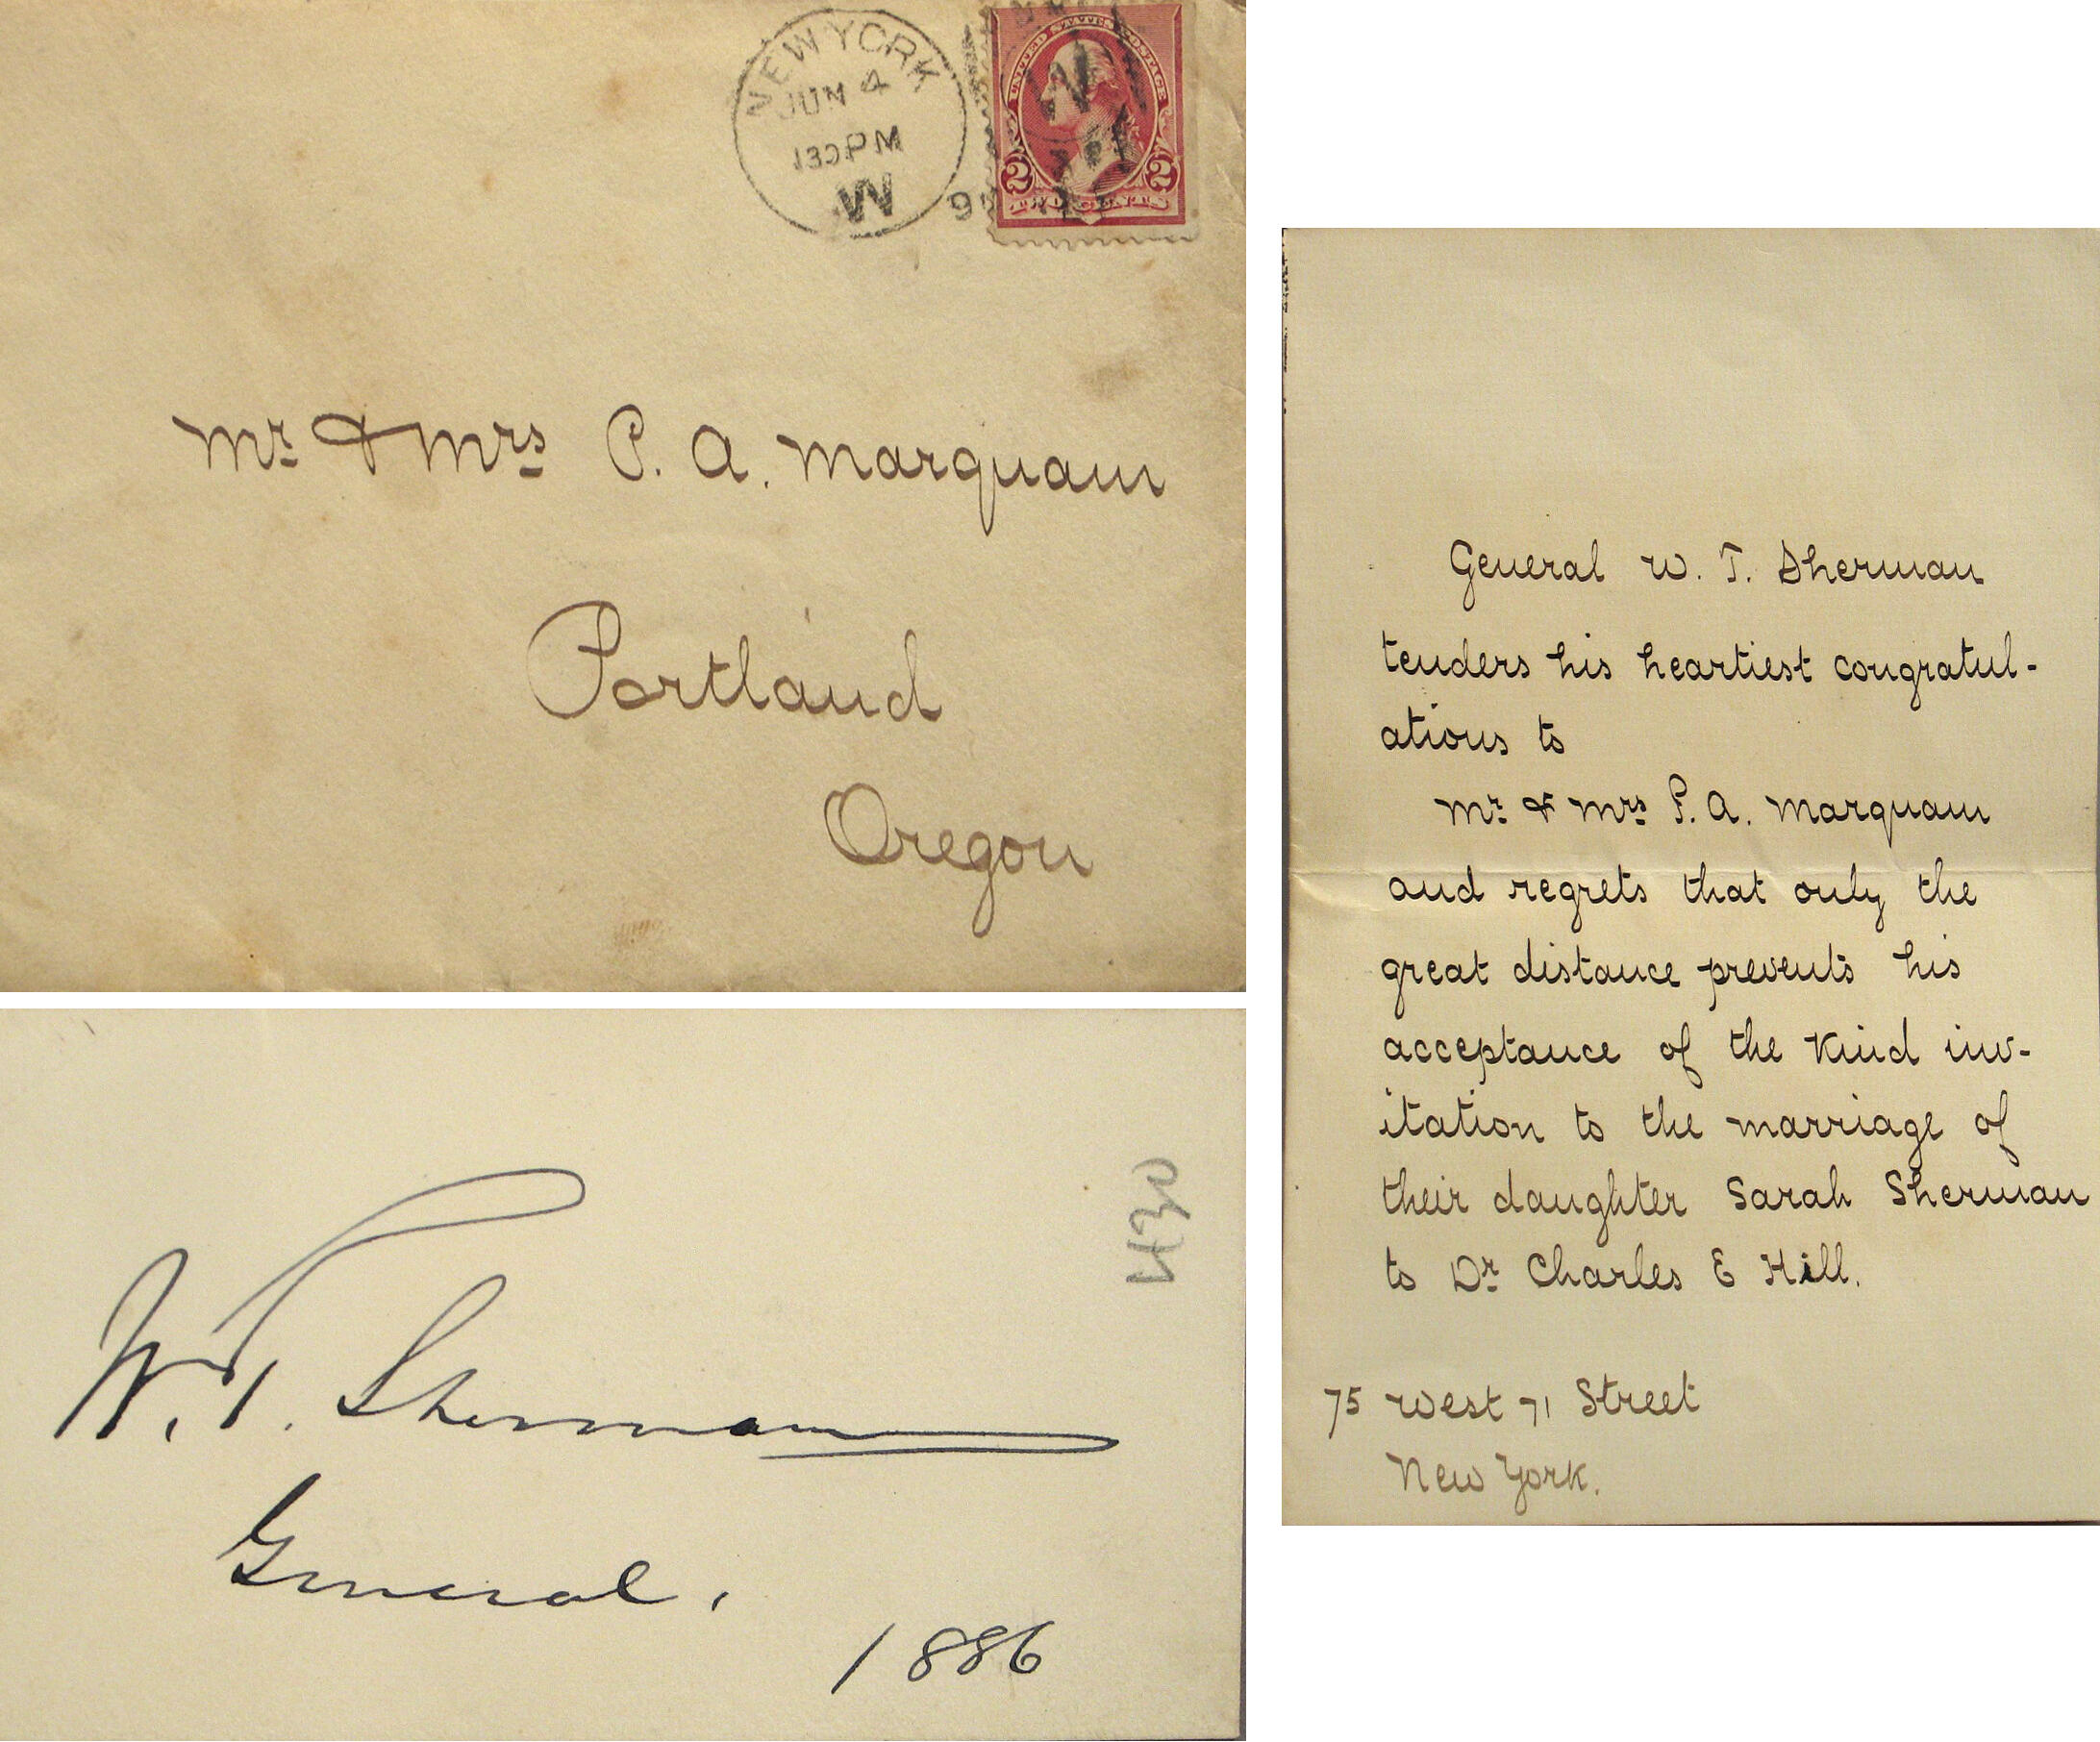 NEW YORK
JUN 4
130PM
W
UNITED STATES POSTAGE
2 2
TWO CENTS
Mr & Mrs P. A. Marquam
Portland
Oregon
W. T. Sherman
General.
1886
430
General W. T. Sherman
tenders his heartiest congratul-
ations to
Mr & Mrs P. A. Marquam
and regrets that only the
great distance prevents his
acceptance of the kind inv-
itation to the marriage of
their daughter Sarah Sherman
to Dr Charles E Hill.
75 West 71 Street
New York.